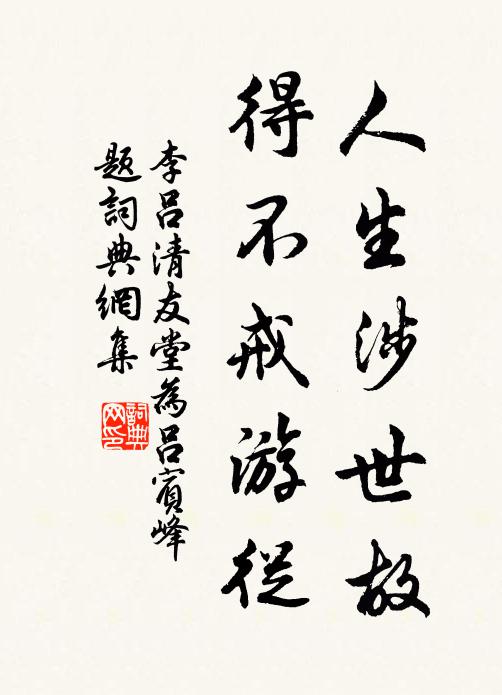 人生涉世故
得不戒游從
李呂清友堂為呂賓峰
題詞典網集
詞典
网印